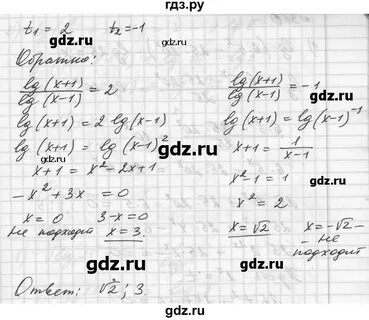 гдз.ру
t₁ = 2 t₂ = -1
gdz.ru
Обратно:
lg(x+1)/lg(x-1) = 2
lg(x+1) = 2 lg(x-1)
lg(x+1) = lg(x-1)²
x+1 = x² - 2x + 1
-x² + 3x = 0
x = 0 3-x = 0
не подходит x = 3
lg(x+1)/lg(x-1) = -1
lg(x+1) = lg(x-1)⁻¹
x+1 = 1/(x-1)
x² - 1 = 1
x² = 2
x = √2 x = -√2 -
- не
подходит
Ответ: √2; 3.
gdz.ru
gdz.ru
gdz.ru
gdz.ru
gdz.ru
gdz.ru
gdz.ru
gdz.ru